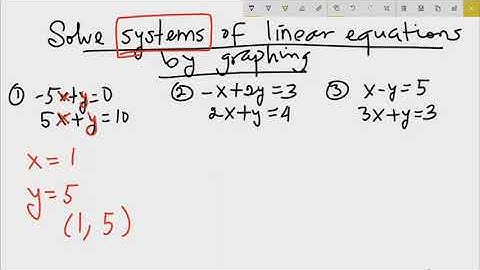 Solve systems of linear equations
by graphing
① -5x+y=0
5x+y=10
② -x+2y=3
2x+y=4
③ x-y=5
3x+y=3
x=1
y=5
(1, 5)